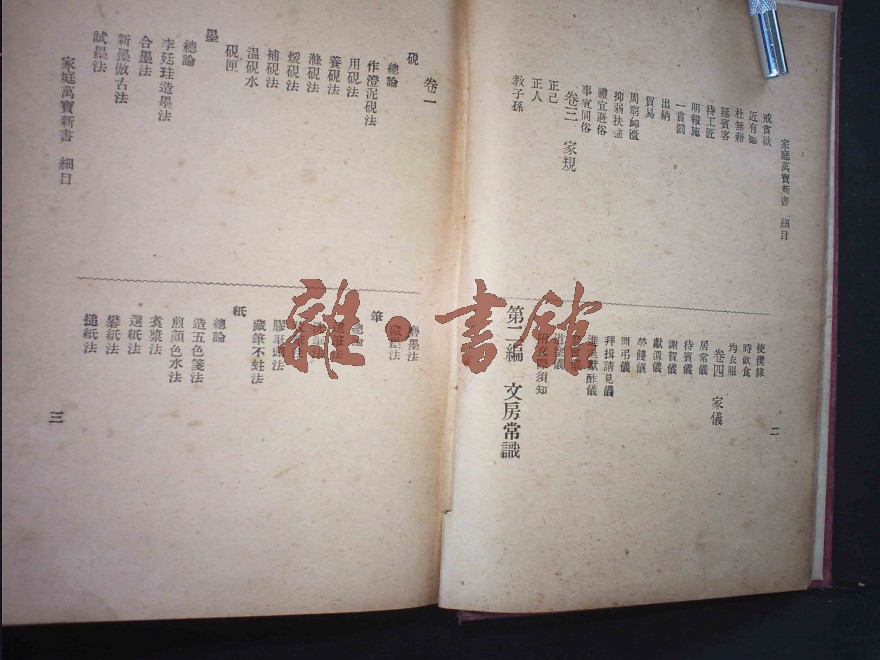 家庭萬寶新書 細目
二
戒貪欲
近有德
杜無藉
延賓客
待工匠
明報施
一賞罰
出納
貿易
周窮卹匱
抑弱扶
禮宜從俗
事宜同俗
卷三 家規
正己
正人
教子孫
使僕隸
時飲食
均衣服
卷四 家儀
居常儀
待賓儀
謝賀儀
獻遺儀
餞儀
弔儀
拜揖請見儀
進獻酢儀
須知
第二編 文房常識
卷一
硯
總論
作澄泥硯法
用硯法
養硯法
滌硯法
煖硯法
補硯法
温硯水
硯匣
墨
總論
李廷珪造墨法
合墨法
新墨倣古法
試墨法
磨墨法
藏墨法
筆
總論
膠筆頭法
藏筆不蛀法
紙
總論
造五色箋法
煎顏色水法
煮漿法
選紙法
礬紙法
搥紙法
家庭萬寶新書 細目
三
雜·書館